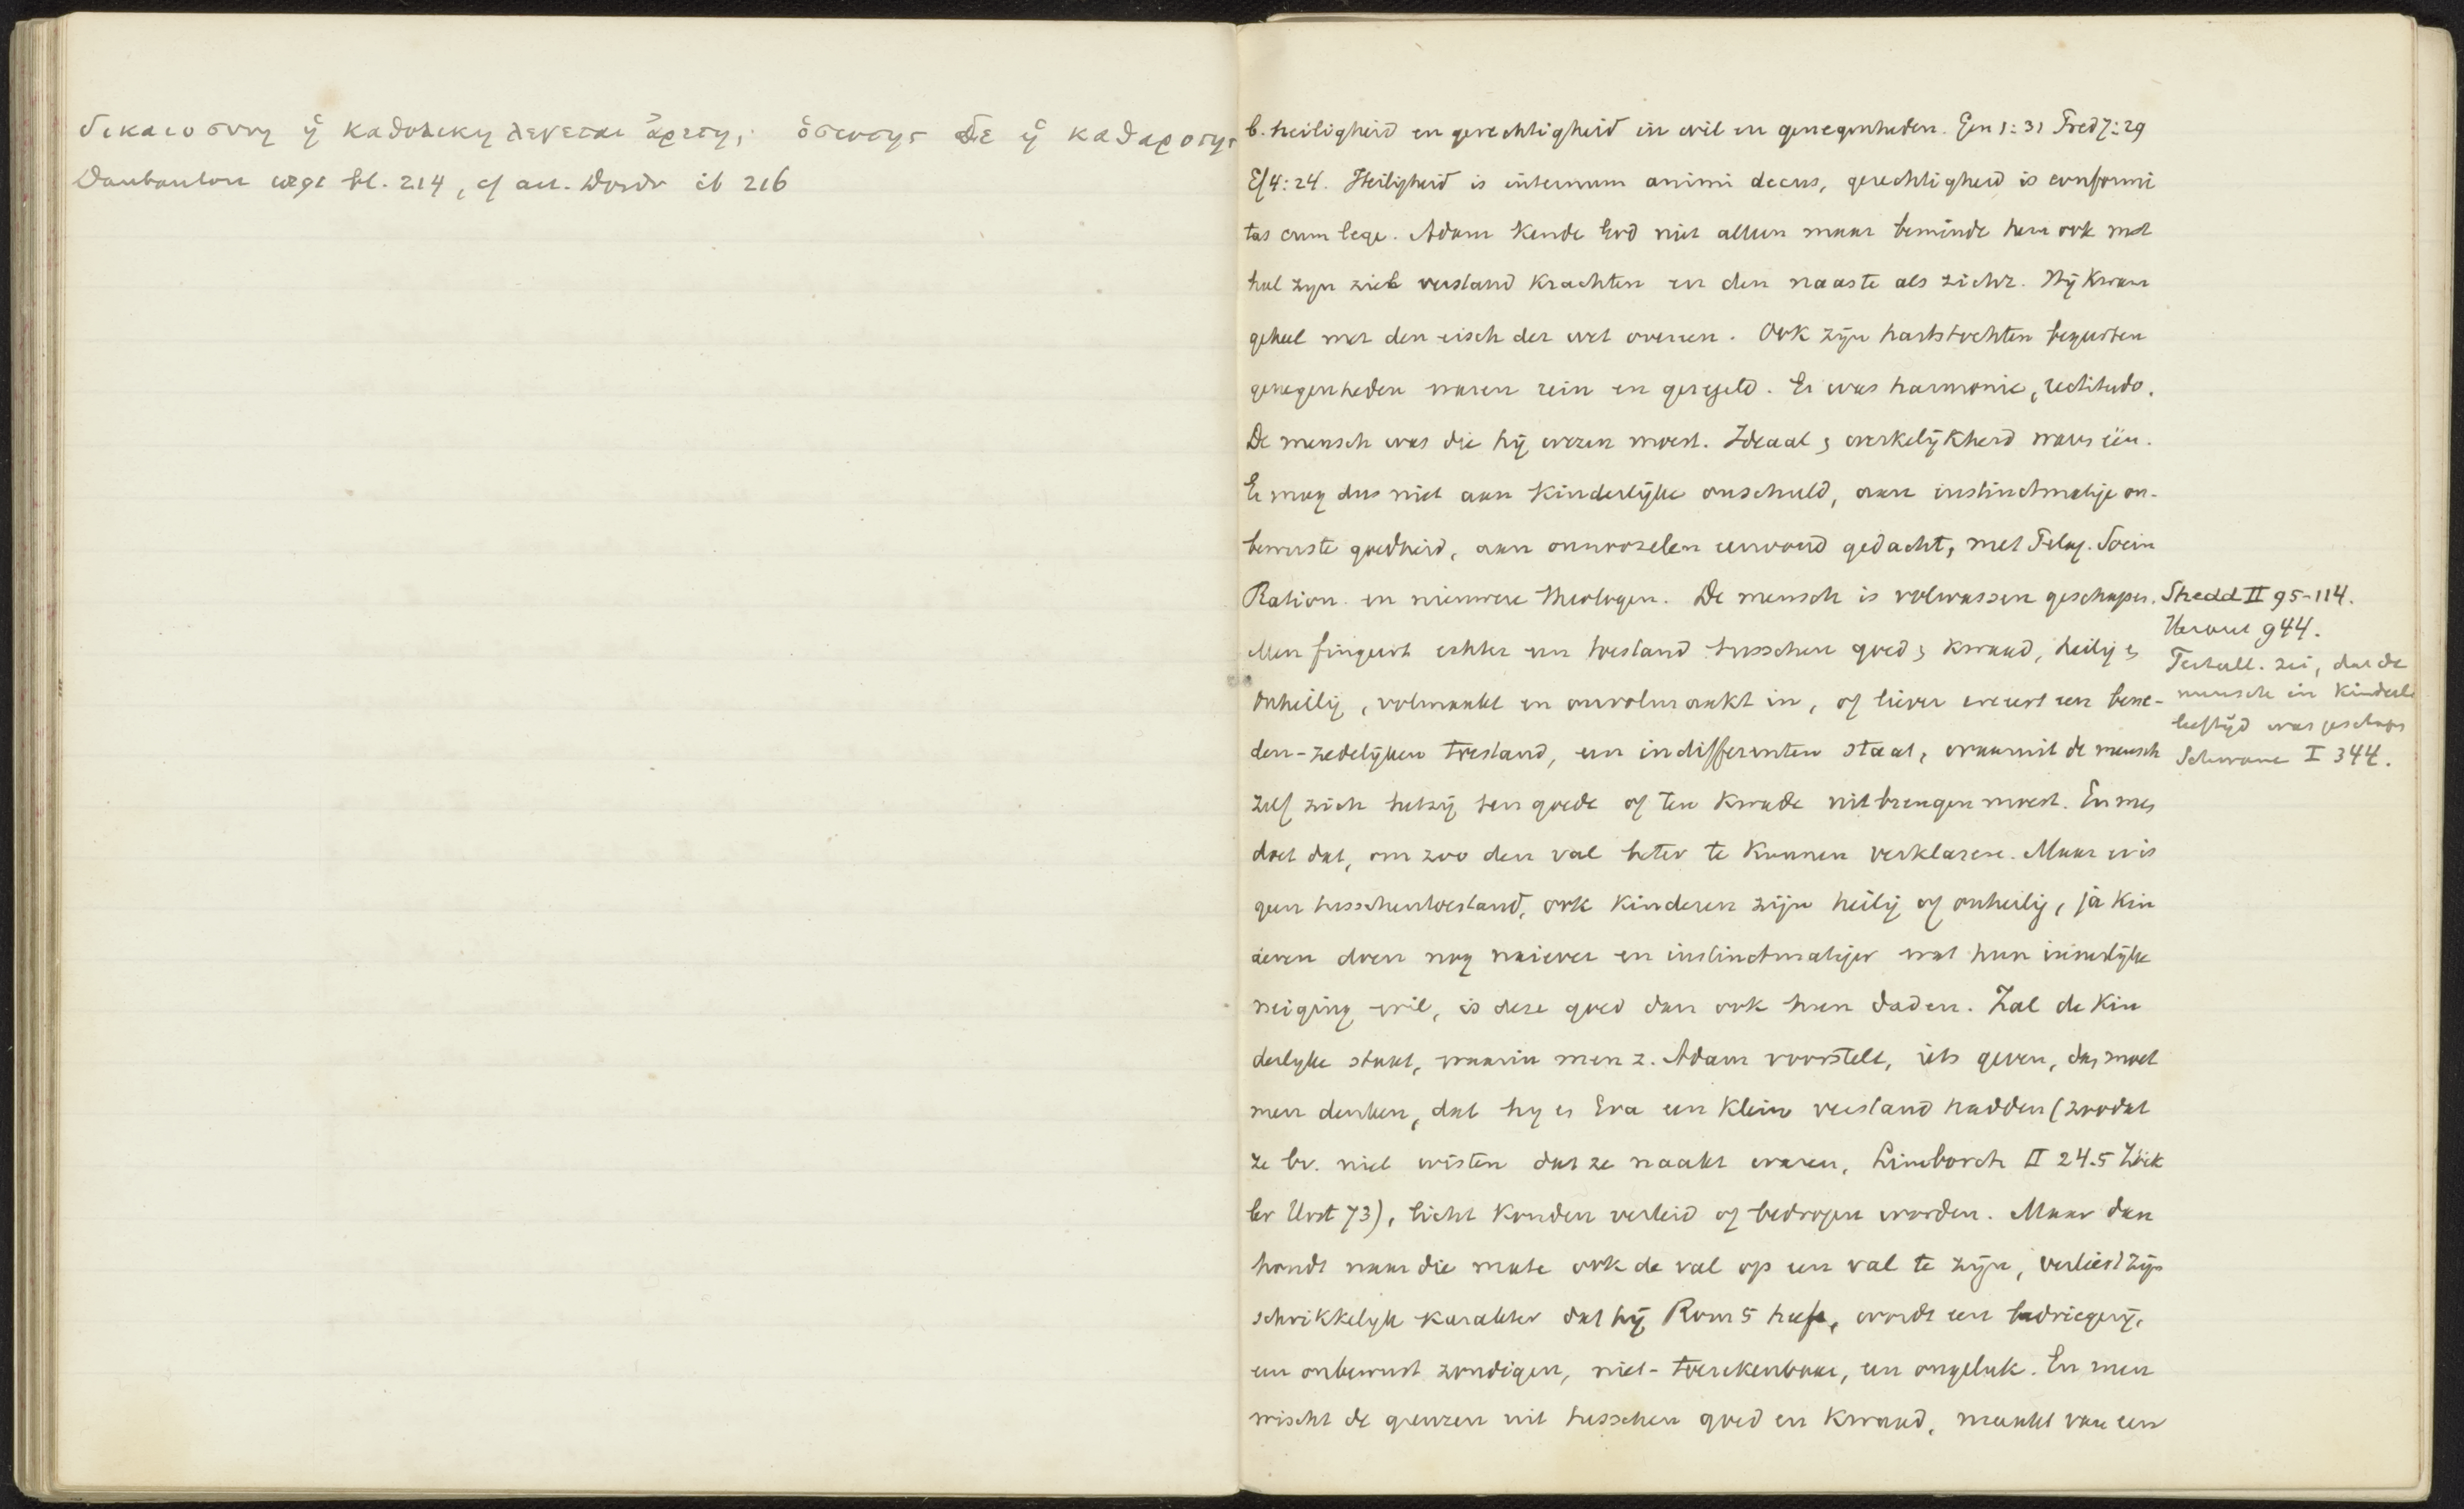 δικαιοσυνη ἡ καθολικη λεγεται ἀρετη, ὁσιοτης δε ἡ καθαροτης
Daubanton bl. 214, cf ib 216
b. heiligheid en gerechtigheid in wil en genegenheden. Gen 1:31 Pred 7:29
Ef 4:24. Heiligheid is internum animi decus, gerechtigheid is conformi
tas cum lege. Adam kende God niet alleen maar beminde hem ook met
heel zijn ziel verstand krachten en den naaste als zichz. Hij kwam
geheel met den eisch der wet overeen. Ook zijn hartstochten begeerten
genegenheden waren rein en geregeld. Er was harmonie, rectitudo.
De mensch was die hij wezen moest. Ideaal & werkelijkheid waren één.
Er mag dus niet aan kinderlijke onschuld, aan instinctmatige on-
bewuste goedheid, aan onnoozelen eenvoud gedacht, met Pelag. Socin
Ration. en nieuwere theologen. De mensch is volwassen geschapen.
Men fingeert echter een toestand tusschen goed & kwaad, heilig &
onheilig, volmaakt en onvolmaakt in, of liever eerst een bene-
den-zedelijken toestand, een indifferenten staat, waaruit de mensch
zelf zich hetzij ten goede of ten kwade uitbrengen moest. En men
doet dat, om zoo den val beter te kunnen verklaren. Maar er is
geen tusschentoestand, ook kinderen zijn heilig of onheilig, ja kin
deren doen nog naiever en instinctmatiger wat hun innerlijke
neiging wil, is deze goed dan ook hun daden. Zal de kin
derlijke staat, waarin men z. Adam voorstelt, iets geven, dan moet
men denken, dat hij en Eva een klein verstand hadden (zoodat
ze bv. niet wisten dat ze naakt waren, Limborch II 24.5 Zöck
ler Urst 73), licht konden verleid of bedrogen worden. Maar dan
houdt naar die mate ook de val op een val te zijn, verliest zijn
schrikkelijk karakter dat hij Rom 5 heeft, wordt een bedriegerij,
een onbewust zondigen, niet-toerekenbaar, een ongeluk. En men
wischt de grenzen uit tusschen goed en kwaad, maakt van een
Shedd II 95-114.
944.
Tertull. zei, dat de
mensch in kinderl
leeftijd was geschapen
Schwane I 344.